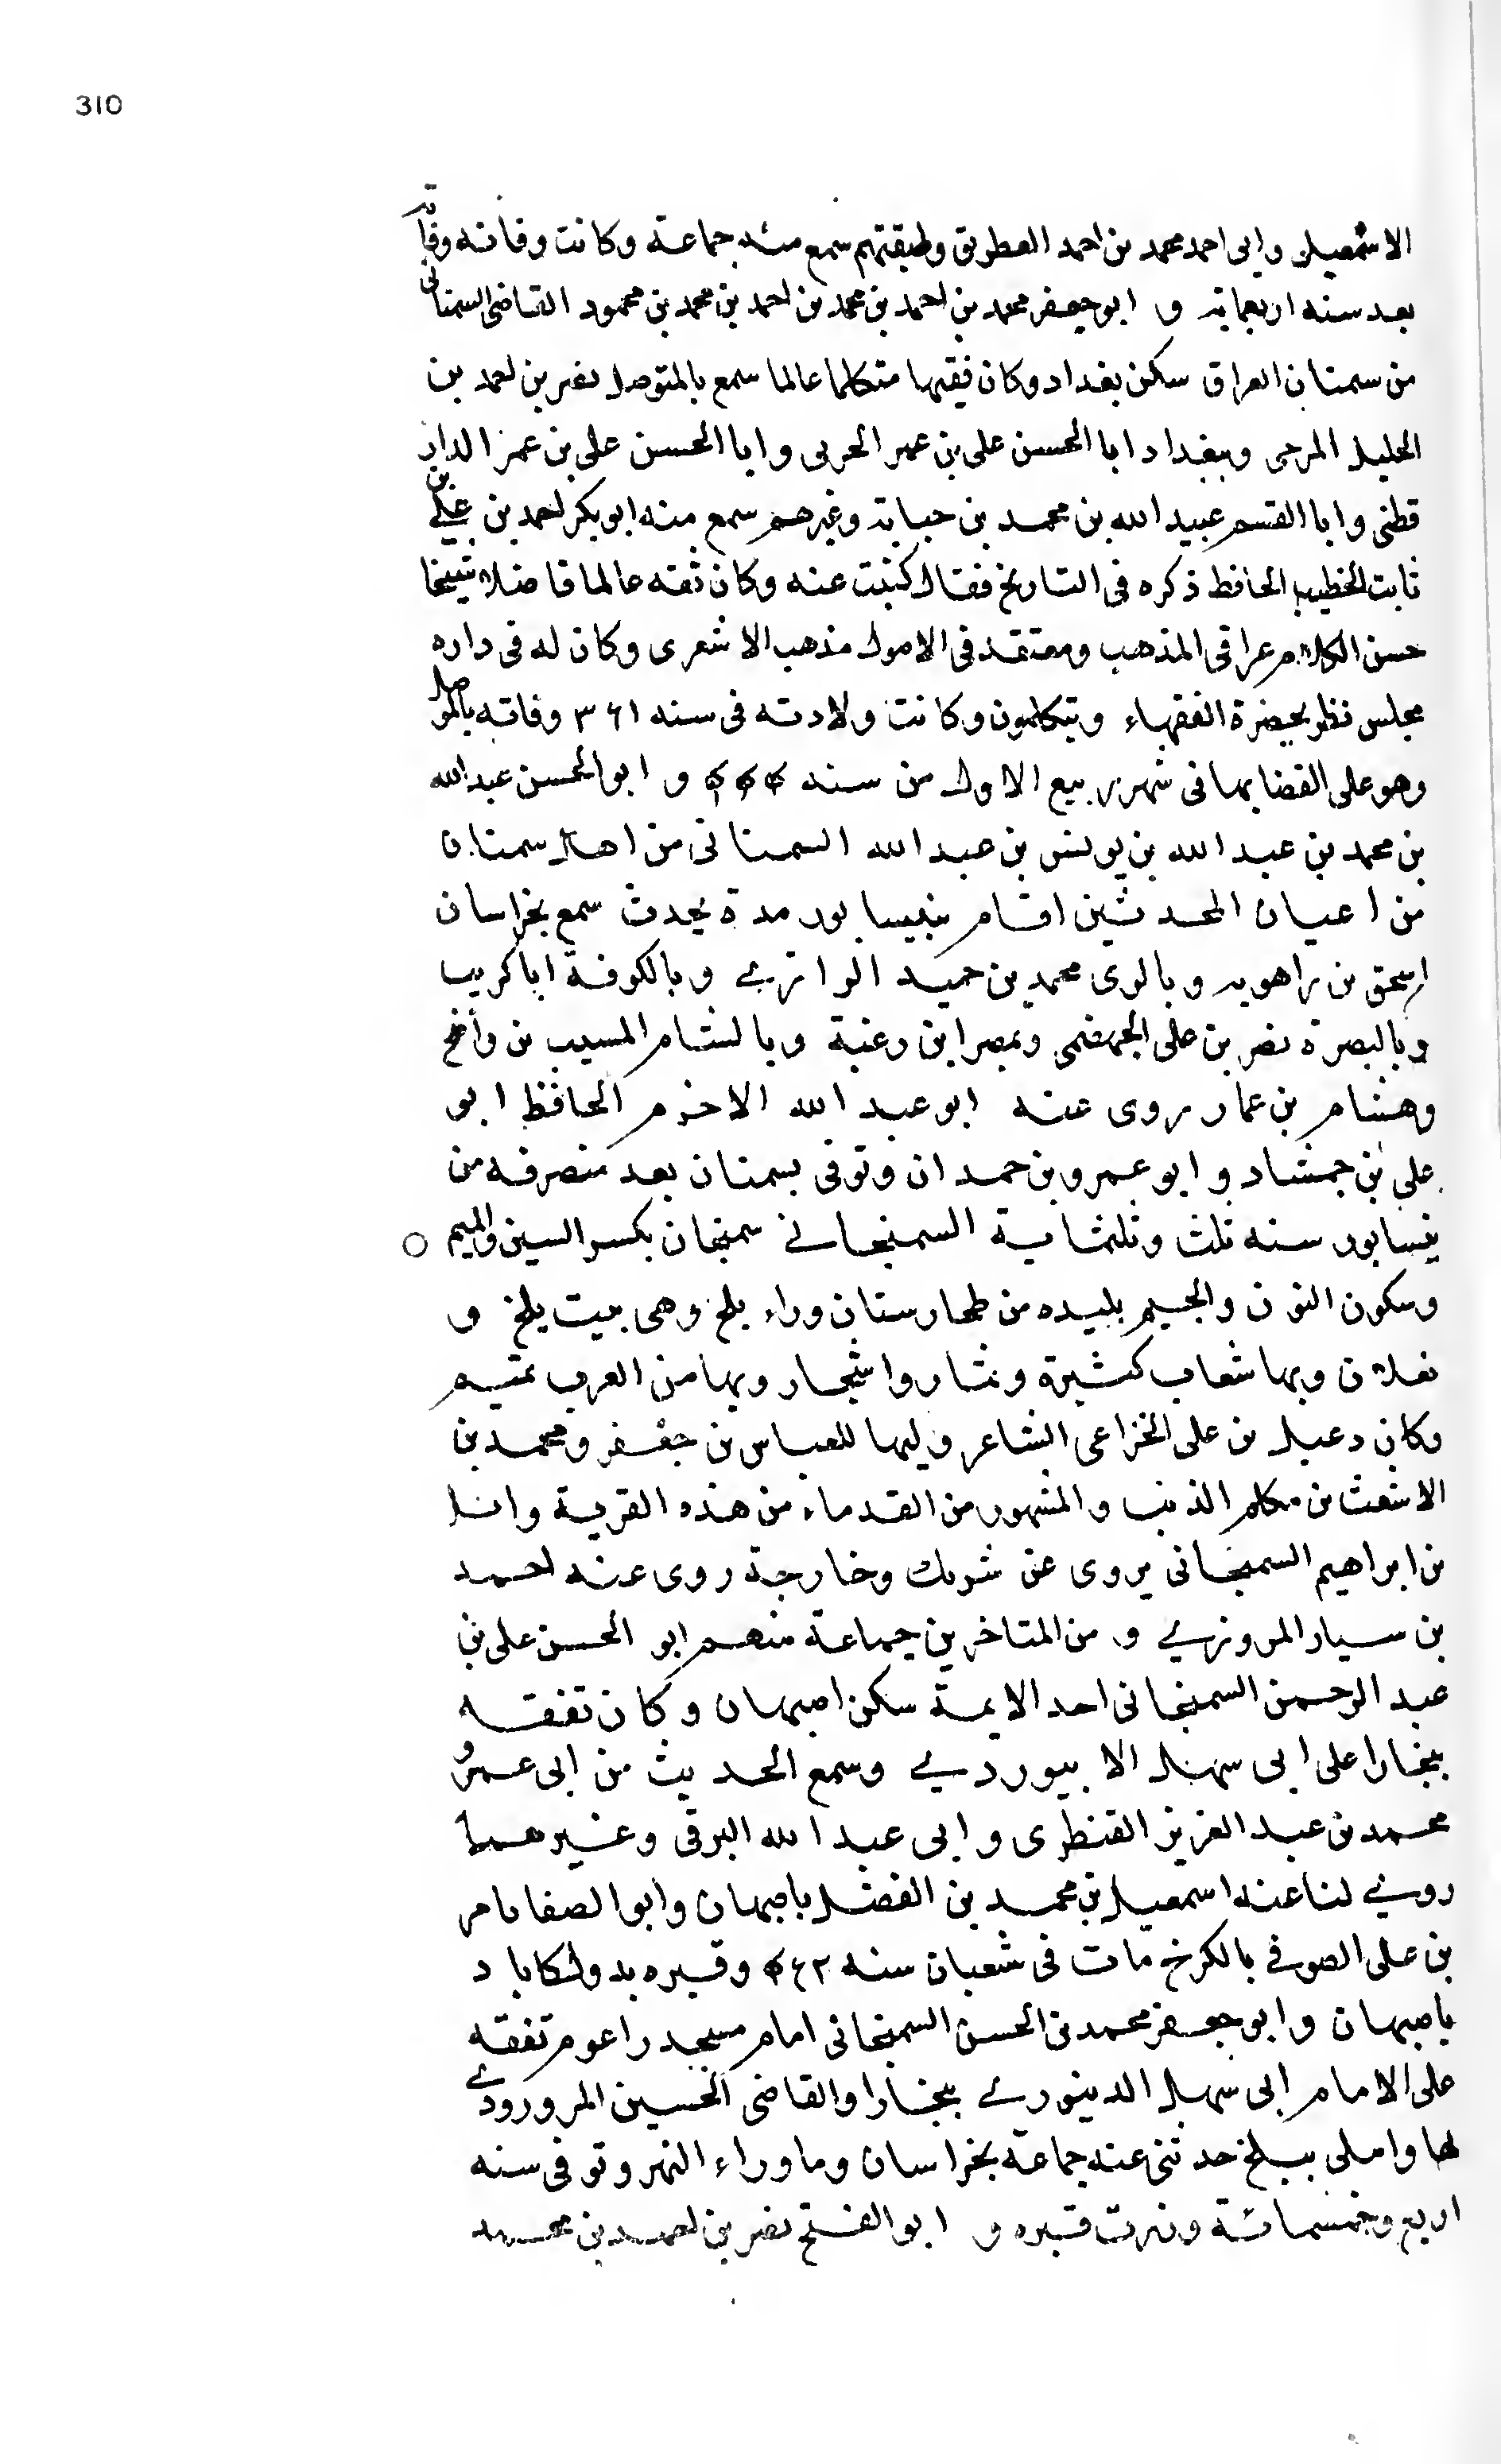 310
الاسمعيلى وابى احمد محمد بن احمد العطريق وطبقتهم سمع منه جماعة وكانت وفاته وفاته
بعد سنه اربعماية و ابو جعفر محمد بن احمد بن محمد بن احمد بن محمد بن محمود القاضى السمنانى
من سمنان العراق سكن بغداد وكان فقيها متكلما عالما سمع بالموصل نصر بن احمد بن
الخليل المرجى وببغداد ابا الحسن على بن عمر الحربى وابا الحسن على بن عمر الدار
قطنى وابا القسم عبيد الله بن محمد بن حبابة وغيرهم سمع منه ابو بكر احمد بن على بن
ثابت الخطيب الحافظ ذكره فى التاريخ فقال كتبت عنه وكان ثقه عالما فاضلا شيخا
حسن الكلام عراقى المذهب ومعتقد فى الاصول مذهب الاشعرى وكان له فى داره
مجلس نظر بحضرة الفقهاء ويتكلمون وكانت ولادته فى سنه ٣٦١ وفاته بالموصل
وهو على القضا بها فى شهر ربيع الاول من سنه ٤٤٤ و ابو الحسن عبد الله
بن محمد بن عبد الله بن يونس بن عبد الله السمنانى من اهل سمنان
من اعيان المحدثين اقام بنيسابور مدة يحدث سمع بخراسان
اسحق بن راهويه وبالرى محمد بن حميد الرازى وبالكوفة ابا كريب
وبالبصرة نصر بن على الجهضمى وبمصر ابن رغبة وبالشام المسيب بن واضح
وهشام بن عمار روى عنه ابو عبد الله الاخرم الحافظ ابو
على بن جمشاد و ابو عمرو بن حمدان وتوفى بسمنان بعد منصرفه من
نيسابور سنه ثلث وثلثماية السمنجانى سمنجان بكسر السين والميم
وسكون النون والجيم بليده من طخارستان وراء بلخ وهى بيت بلخ و
نغلان وبها شعاب كثيرة وثمار واشجار وبها من العرب تميم
وكان دعبل بن على الخزاعى الشاعر وليها للعباس بن جعفر ومحمد بن
الاشعث من مكلم الذيب والمشهور من القدماء من هذه القرية
بن ابراهيم السمنجانى يروى عن شريك وخارجة روى عنه احمد
بن سيار المروزى و من المتاخرين جماعة منهم ابو الحسن على بن
عبد الرحمن السمنجانى احد الايمة سكن اصبهان وكان تفقه
ببخارا على ابى سهل الابيوردى وسمع الحديث من ابى عمرو
محمد بن عبد العزيز القنطرى و ابى عبد الله البرقى وغيرهما
روى لنا عنه اسمعيل بن محمد بن الفضل باصبهان وابو الصفا تامر
بن على الصوفى بالكرخ مات فى شعبان سنه وقبره بدولكاباد
باصبهان و ابو جعفر محمد بن الحسن السمنجانى امام مسجد راعوم تفقه
على الامام ابى سهل الدينورى ببخارا والقاضى الحسين المرورودى
لها واملى ببلخ حدثنى عنه جماعة بخراسان وما وراء النهر وتوفى سنه
اربع وخمسمائة وزرت قبره و ابو الفتح نصر بن احمد بن محمد